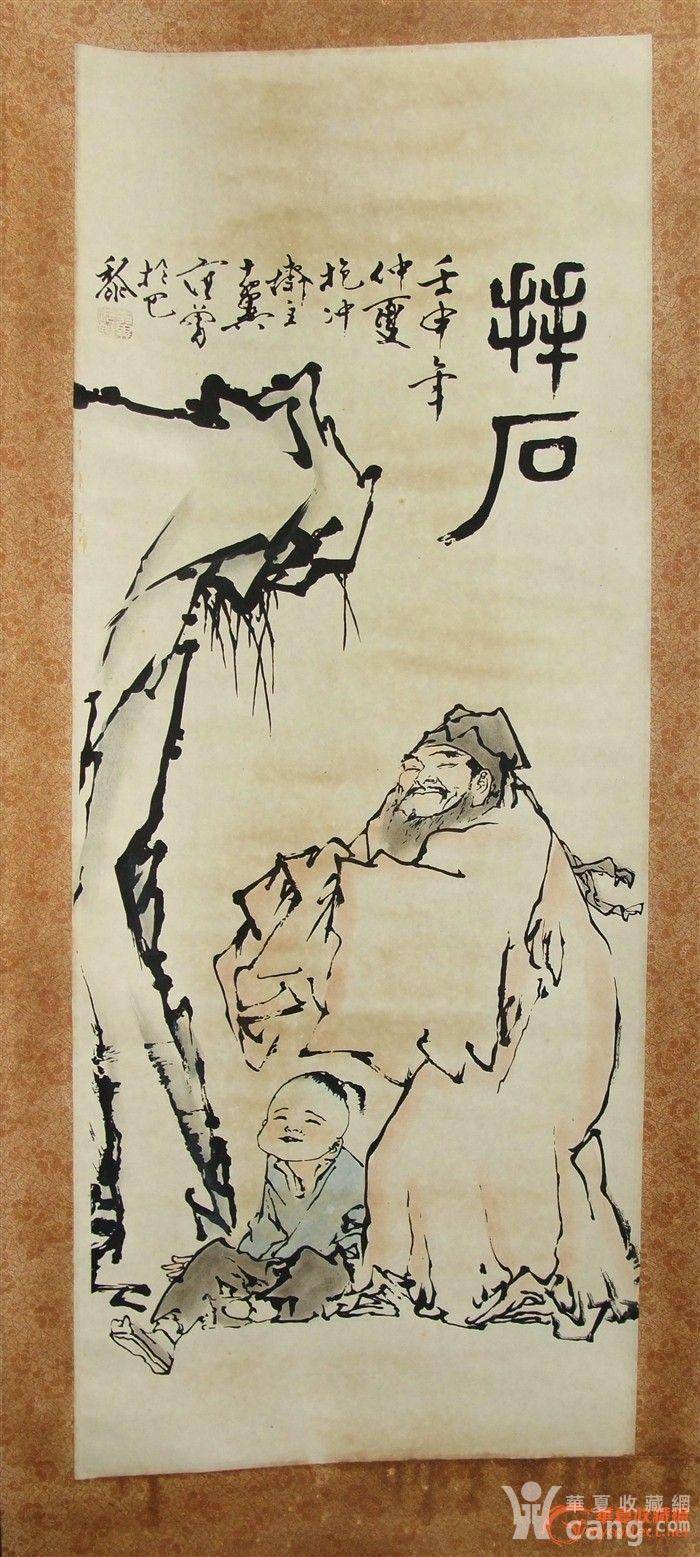 拜石
壬申年
仲夏
抱冲
齋主
十翼
范曾
於巴
黎
華夏收藏網
cang.com